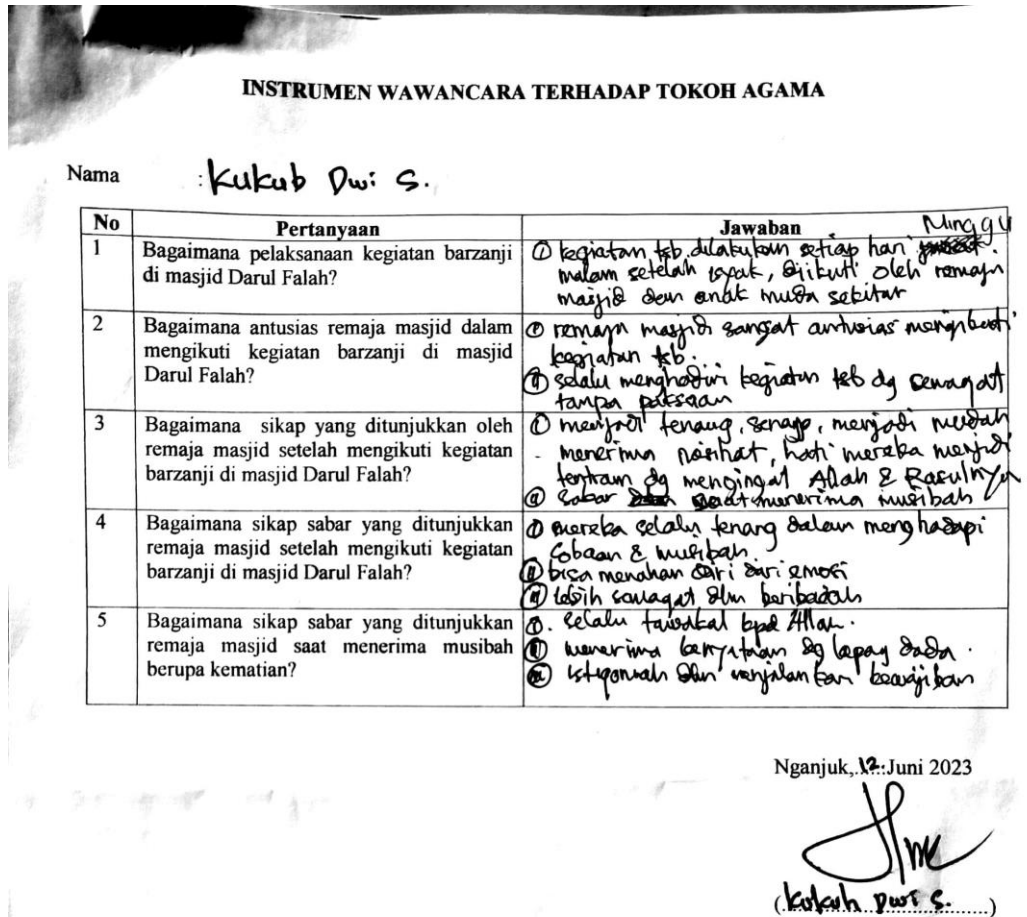 INSTRUMEN WAWANCARA TERHADAP TOKOH AGAMA
Nama : Kukub Dwi S.
No Pertanyaan Jawaban Minggu
1 Bagaimana pelaksanaan kegiatan barzanji
di masjid Darul Falah?
① kegiatan tsb. dilakukan setiap hari
malam setelah isyak, diikuti oleh remaja
masjid dan anak muda sekitar
2 Bagaimana antusias remaja masjid dalam
mengikuti kegiatan barzanji di masjid
Darul Falah?
① remaja masjid sangat antusias mengikuti
kegiatan tsb.
② selalu menghadiri kegiatan tsb dg semagat
tanpa paksaan
3 Bagaimana sikap yang ditunjukkan oleh
remaja masjid setelah mengikuti kegiatan
barzanji di masjid Darul Falah?
① menjadi tenang, senang, menjadi mudah
menerima nasihat, hati mereka menjadi
tentram dg mengingat Allah & Rasulnya
② sabar saat menerima musibah
4 Bagaimana sikap sabar yang ditunjukkan
remaja masjid setelah mengikuti kegiatan
barzanji di masjid Darul Falah?
① mereka selalu tenang dalam menghadapi
cobaan & musibah.
② bisa menahan diri dari emosi
③ lebih semagat dlm beribadah
5 Bagaimana sikap sabar yang ditunjukkan
remaja masjid saat menerima musibah
berupa kematian?
①. selalu tawakal kpd Allah.
② menerima kenyataan dg lapang dada.
③ istiqomah dlm menjalankan kewajiban
Nganjuk, 12 Juni 2023
(Kukuh Dwi S.)